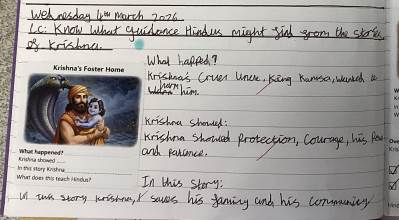 Wednesday 4th March 2026
LC: Know what guidance Hindus might find from the stories
of Krishna.
Krishna's Foster Home
What happened?
Krishna showed ....
In this story Krishna ....
What does this teach Hindus?
What happed?
Krishna's cruel uncle, King Kamsa, wanted to
harm him.
Krishna showed:
Krishna showed protection, courage, his
and patience.
In this story:
In this story krishna, saves his family and his community